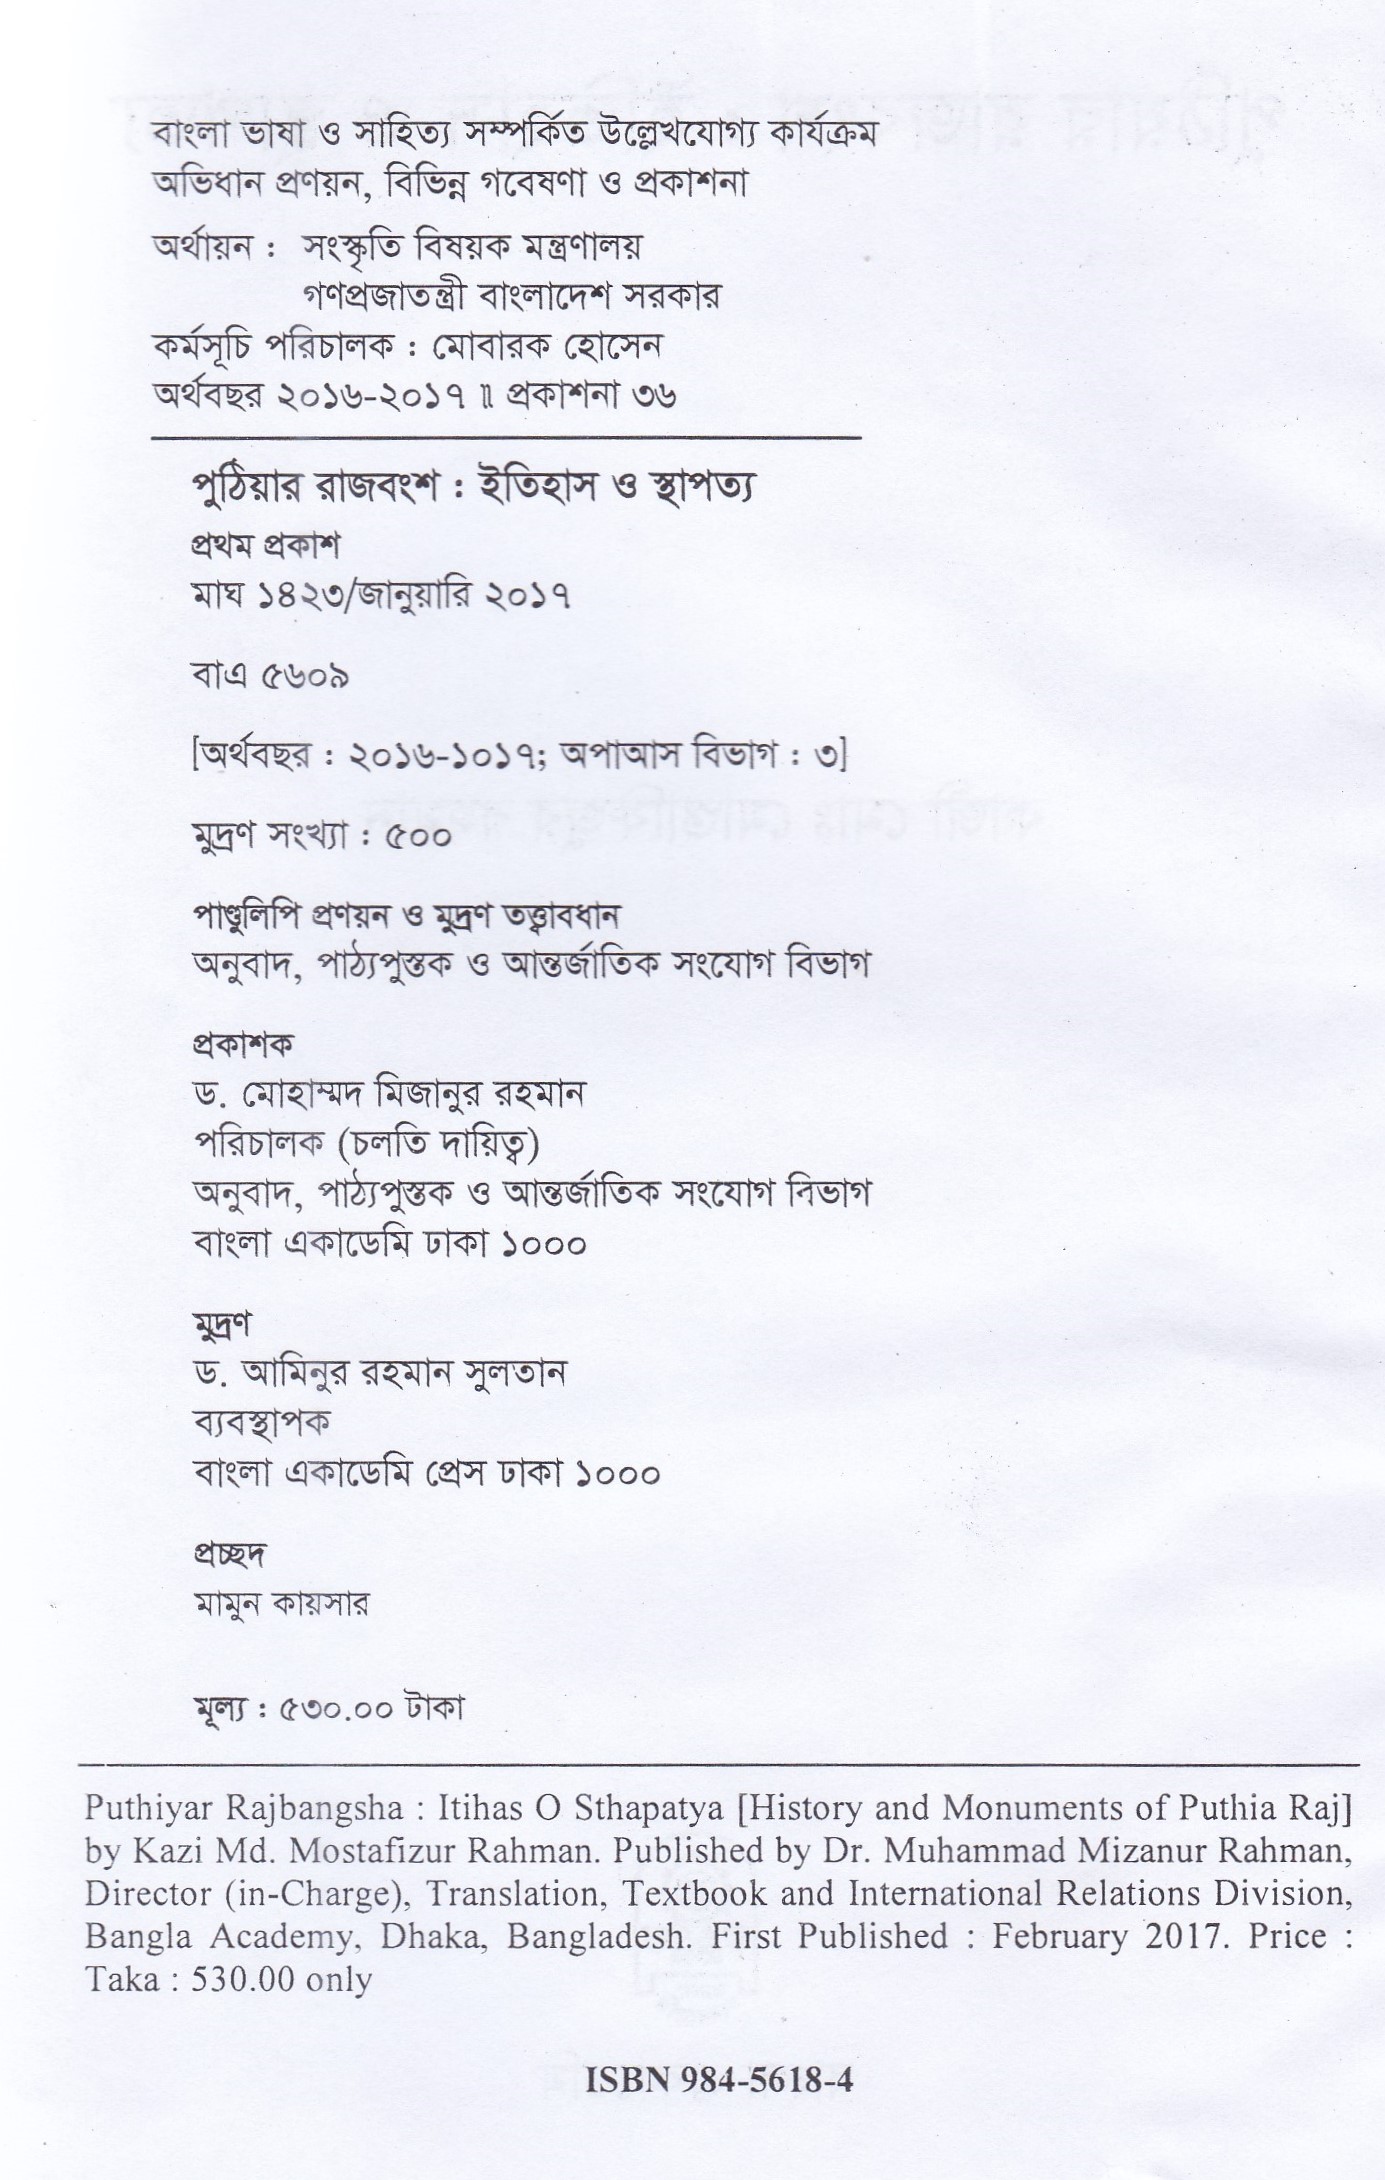 বাংলা ভাষা ও সাহিত্য সম্পর্কিত উল্লেখযোগ্য কার্যক্রম
অভিধান প্রণয়ন, বিভিন্ন গবেষণা ও প্রকাশনা
অর্থায়ন : সংস্কৃতি বিষয়ক মন্ত্রণালয়
গণপ্রজাতন্ত্রী বাংলাদেশ সরকার
কর্মসূচি পরিচালক : মোবারক হোসেন
অর্থবছর ২০১৬-২০১৭ ॥ প্রকাশনা ৩৬
পুঠিয়ার রাজবংশ : ইতিহাস ও স্থাপত্য
প্রথম প্রকাশ
মাঘ ১৪২৩/জানুয়ারি ২০১৭
বাএ ৫৬০৯
[অর্থবছর : ২০১৬-১০১৭; অপাআস বিভাগ : ৩]
মুদ্রণ সংখ্যা : ৫০০
পাণ্ডুলিপি প্রণয়ন ও মুদ্রণ তত্ত্বাবধান
অনুবাদ, পাঠ্যপুস্তক ও আন্তর্জাতিক সংযোগ বিভাগ
প্রকাশক
ড. মোহাম্মদ মিজানুর রহমান
পরিচালক (চলতি দায়িত্ব)
অনুবাদ, পাঠ্যপুস্তক ও আন্তর্জাতিক সংযোগ বিভাগ
বাংলা একাডেমি ঢাকা ১০০০
মুদ্রণ
ড. আমিনুর রহমান সুলতান
ব্যবস্থাপক
বাংলা একাডেমি প্রেস ঢাকা ১০০০
প্রচ্ছদ
মামুন কায়সার
মূল্য : ৫৩০.০০ টাকা
Puthiyar Rajbangsha : Itihas O Sthapatya [History and Monuments of Puthia Raj]
by Kazi Md. Mostafizur Rahman. Published by Dr. Muhammad Mizanur Rahman,
Director (in-Charge), Translation, Textbook and International Relations Division,
Bangla Academy, Dhaka, Bangladesh. First Published : February 2017. Price :
Taka : 530.00 only
ISBN 984-5618-4